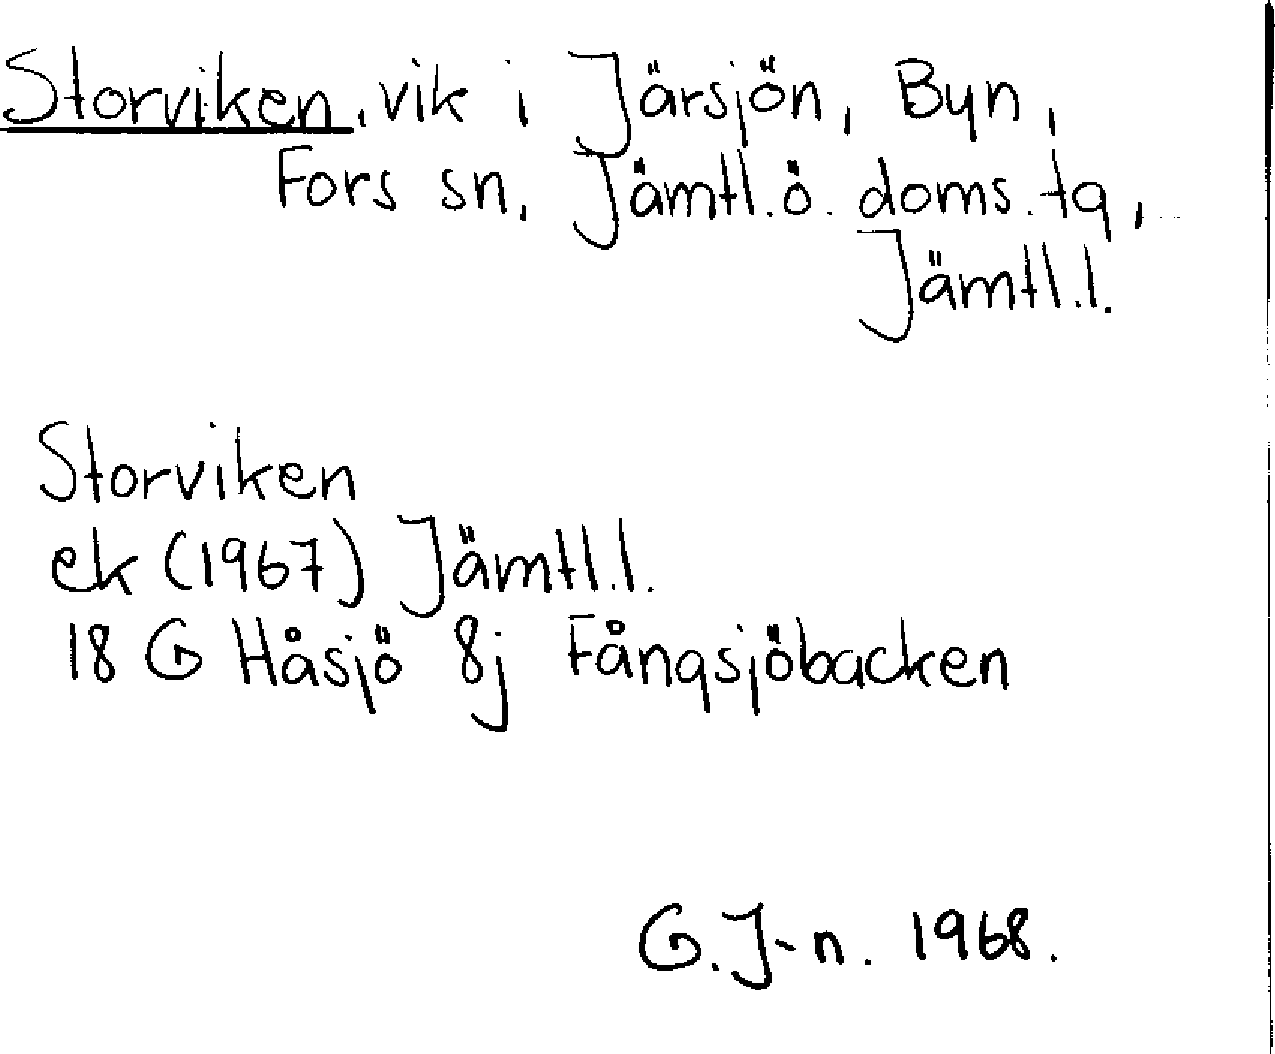 Storviken, vik i Järsjön, Byn,
Fors sn, Jämtl.ö. doms.tg,
Jämtl.l.
Storviken
ek (1967) Jämtl.l.
18 G Håsjö 8j Fångsjöbacken
G.J-n. 1968.